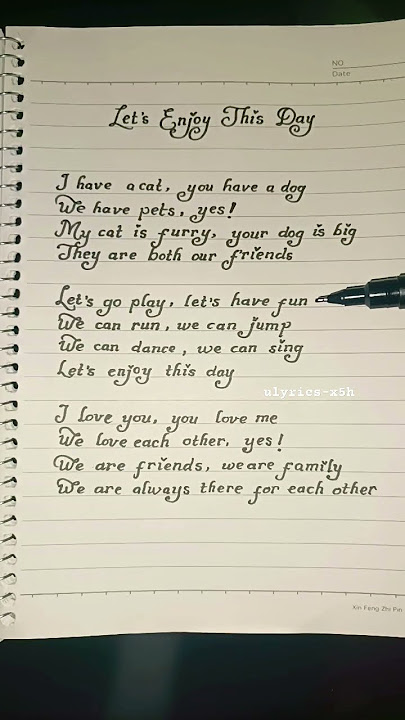 NO
Date
Let's Enjoy This Day
I have a cat, you have a dog
We have pets, yes!
My cat is furry, your dog is big
They are both our friends
Let's go play, let's have fun
We can run, we can jump
We can dance, we can sing
Let's enjoy this day
ulyrics-x5h
I love you, you love me
We love each other, yes!
We are friends, we are family
We are always there for each other
Xin Feng Zhi Pin